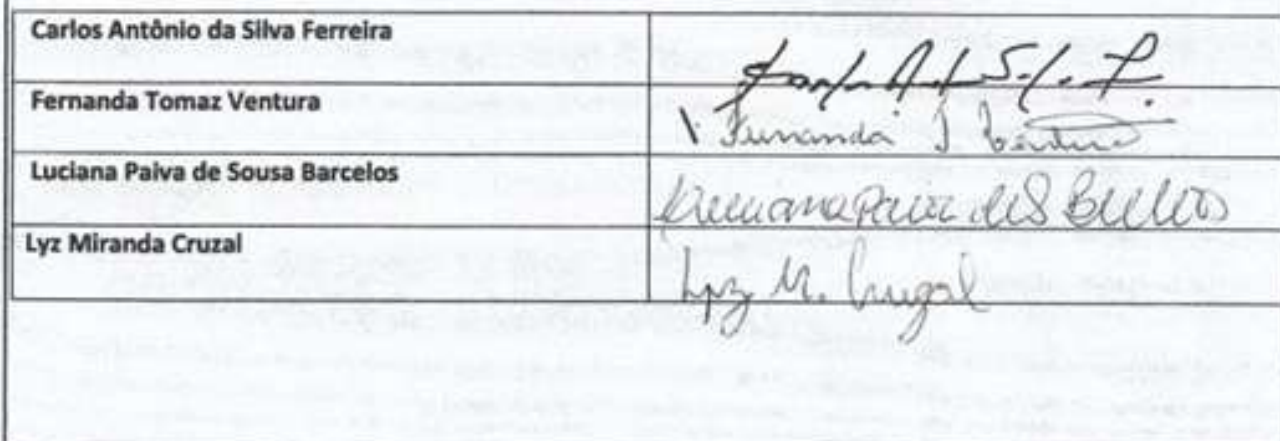 Carlos Antônio da Silva Ferreira
Fernanda Tomaz Ventura
Fernanda T Ventura
Luciana Paiva de Sousa Barcelos
Luciana Paiva de S Barcelos
Lyz Miranda Cruzal
Lyz M. Cruzal